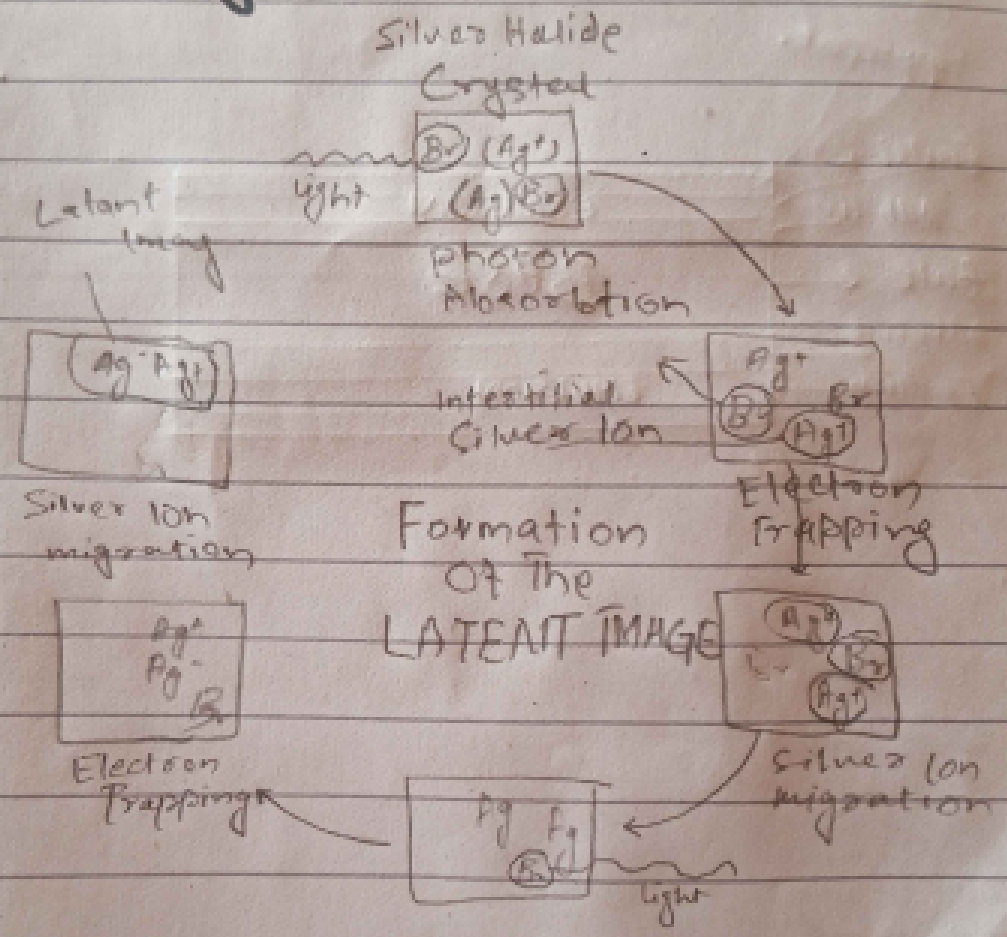 Silver Halide
Crystal
Br (Ag+)
(Ag) Br
light
Photon
Absorbtion
Latant
Imag
Ag- Ag+
Silver Ion
migration
Intertitial
Silver Ion
Ag+
Br
Br
Ag+
Electron
Trapping
Formation
Of The
LATEANT IMAGE
Ag+
Br
Ag+
Silver Ion
migration
Ag+
Ag-
Br
Electron
Trapping
Ag
Ag
Br
light